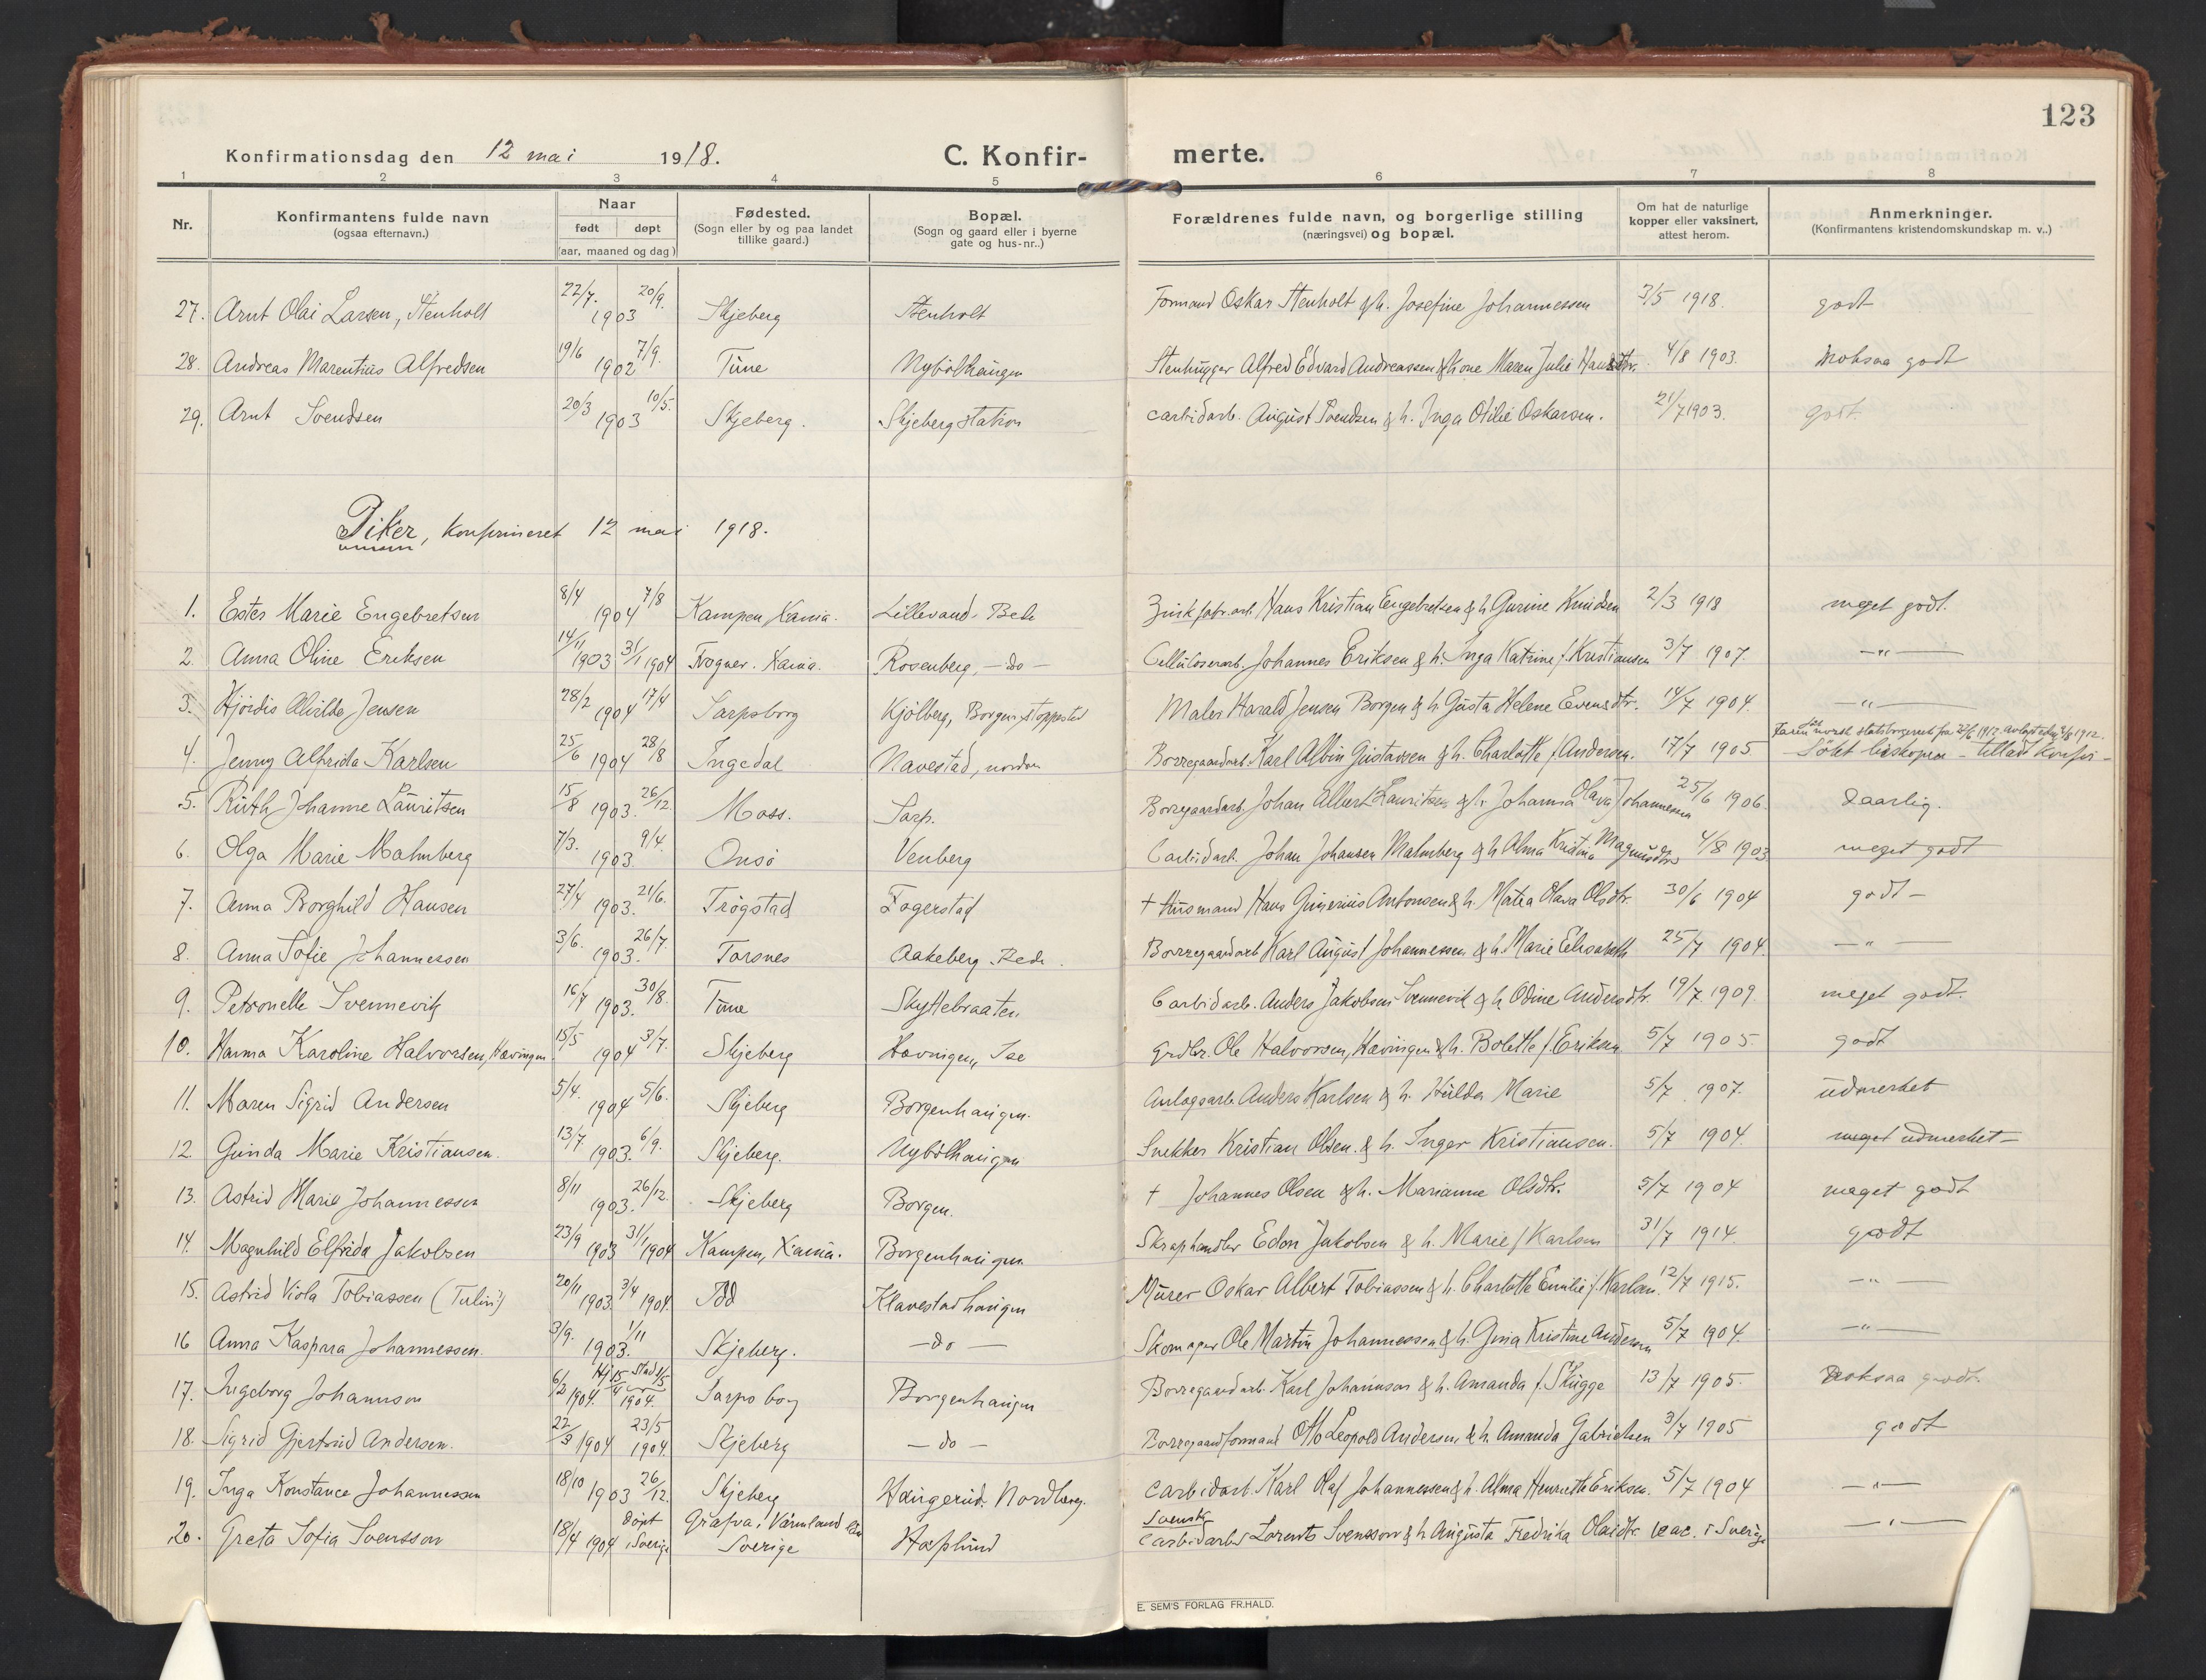 123
Konfirmationsdag den 12 mai 1918. C. Konfirmerte.
1 2 3 4 5 6 7 8
Nr. Konfirmantens fulde navn (ogsaa efternavn.) Naar født døpt (aar, maaned og dag) Fødested. (Sogn eller by og paa landet tillike gaard.) Bopæl. (Sogn og gaard eller i byerne gate og hus-nr..) Forældrenes fulde navn, og borgerlige stilling (næringsvei) og bopæl. Om hat de naturlige kopper eller vaksinert, attest herom. Anmerkninger. (Konfirmantens kristendomskundskap m. v..)
27. Arnt Olai Larsen, Stenholt 22/7. 20/9. 1903 Skjeberg Stenholt Formand Oskar Stenholt & h. Josefine Johannessen 3/5 1918. godt
28. Andreas Marentius Alfredsen 19/6 7/9. 1902 Tune Nybölhaugen Stenhugger Alfred Edvard Andreassen & kone Maren Julie Hansdtr. 4/8 1903. noksaa godt
29. Arnt Svendsen 20/3 10/5. 1903 Skjeberg. Skjeberg station carbidarb. August Svendsen & h. Inga Otilie Oskarsen. 21/7 1903. godt.
Piker, konfirmeret 12 mai 1918.
1. Ester Marie Engebretsen 8/4 7/8 1904 Kampen, Xania. Lillevand. Hans Kristian Engebretsen & h. Gurine Knudsen 2/3 1918 meget godt.
2. Anna Oline Eriksen 14/11 1903 31/1 1904 Frogner. Xania. Rosenberg, -do- Celluloserarb. Johannes Eriksen & h. Inga Katrine f. Kristiansen 3/7 1907. -"-
3. Hjördis Alvilde Jensen 28/2 17/4 1904 Sarpsborg Kjölberg, Borgen stoppested Maler Harald Jensen Borgen & h. Gusta Helene Evensdtr. 14/7 1904. -"-
4. Jenny Alfrida Karlsen 25/6 1904 28/8 Ingedal Navestad, nordre Borregaardarb. Karl Albin Gustavsen & h. Charlotte f. Andersen. 17/7 1905 Søkt biskopen - tillad konfir-
5. Ruth Johanne Lauritsen 15/8 1903. 26/12. Moss. Sarp. Borregaardarb. Johan Albert Lauritsen & h. Johanna Olava Johannessen 25/6 1906. daarlig.
6. Olga Marie Malmberg 7/3. 9/4. 1903 Onsö Venberg Carbidarb. Johan Johansen Malmberg & h. Alma Kristina Magnusdtr. 4/8 1903 meget godt
7. Anna Borghild Hansen 27/4 21/6. 1903. Trögstad Fagerstad † Husmand Hans Antonsen & h. Matea Olava Olsdtr. 30/6 1904 godt -
8. Anna Sofie Johannessen 3/6. 26/7. 1903. Torsnes Aakeberg Borregaardarb. Karl August Johannessen & h. Marie Elisabeth 25/7 1904. -"-
9. Petronelle Svennevik 16/7 1903. 30/8. Tune Skyttebraaten Carbidarb. Anders Jakobsen Svennevik & h. Odine Andersdtr. 19/7 1909. meget godt.
10. Hanna Karoline Halvorsen, Hævingen 15/5 3/7. 1904 Skjeberg Hævingen, Ise Grdbr. Ole Halvorsen, Hævingen & h. Bolette f. Eriksen 5/7 1905. godt
11. Maren Sigrid Andersen 5/4. 5/6. 1904 Skjeberg Borgenhaugen. Anlægsarb. Anders Karlsen & h. Hulda Marie 5/7 1907. udmerket
12. Gunda Marie Kristiansen. 13/7. 6/9. 1903. Skjeberg. Nybölhaugen Snekker Kristian Olsen. & h. Inger Kristiansen. 5/7 1904. meget udmerket -
13. Astrid Marie Johannessen 8/11 26/12. 1903. Skjeberg Borgen. † Johannes Olsen & h. Marianne Olsdtr. 5/7 1904 meget godt
14. Magnhild Elfrida Jakobsen 23/9 1903 31/1 1904 Kampen, Xania. Borgenhaugen Skraphandler Edon Jakobsen & h. Marie f Karlsen 31/7 1914. godt
15. Astrid Viola Tobiassen (Tulin?) 20/11 1903. 3/4 1904. Idd Klavestadhaugen Murer Oskar Albert Tobiassen & h. Charlotte Emilie f. Karlsen. 12/7 1915. -"-
16 Anna Kaspara Johannessen. 3/9. 1/11 1903. Skjeberg. -do- Skomager Ole Martin Johannessen & h. Gina Kristine Andersen 5/7 1904. -"-
17. Ingeborg Johannson 6/2 1904. Hj 15/4 Stad 1/5 1904. Sarpsborg Borgenhaugen Borregaardarb. Karl Johannson & h. Amanda f. Skugge 13/7 1905. noksaa godt.
18. Sigrid Gjertrud Andersen. 22/3 1904 23/5 1904. Skjeberg -do- Borregaardformand Otto Leopold Andersen & h. Amanda Gabrielsen 3/7 1905 godt
19. Inga Konstance Johannessen 18/10 1903 26/12. Skjeberg Haugerud. Nordberg. Carbidarb. Karl Olaf Johannessen & h. Alma Henriette Eriksen. 5/7 1904 -"-
20. Greta Sofia Svensson 18/4 1904 döpt i Sverige Grafva, Värmland län Sverige Hasslund Svensk Carbidarb. Lorents Svensson & h. Augusta Fredrika Olaidtr. vac. i Sverige -"-
E. SEM'S FORLAG FR.HALD.